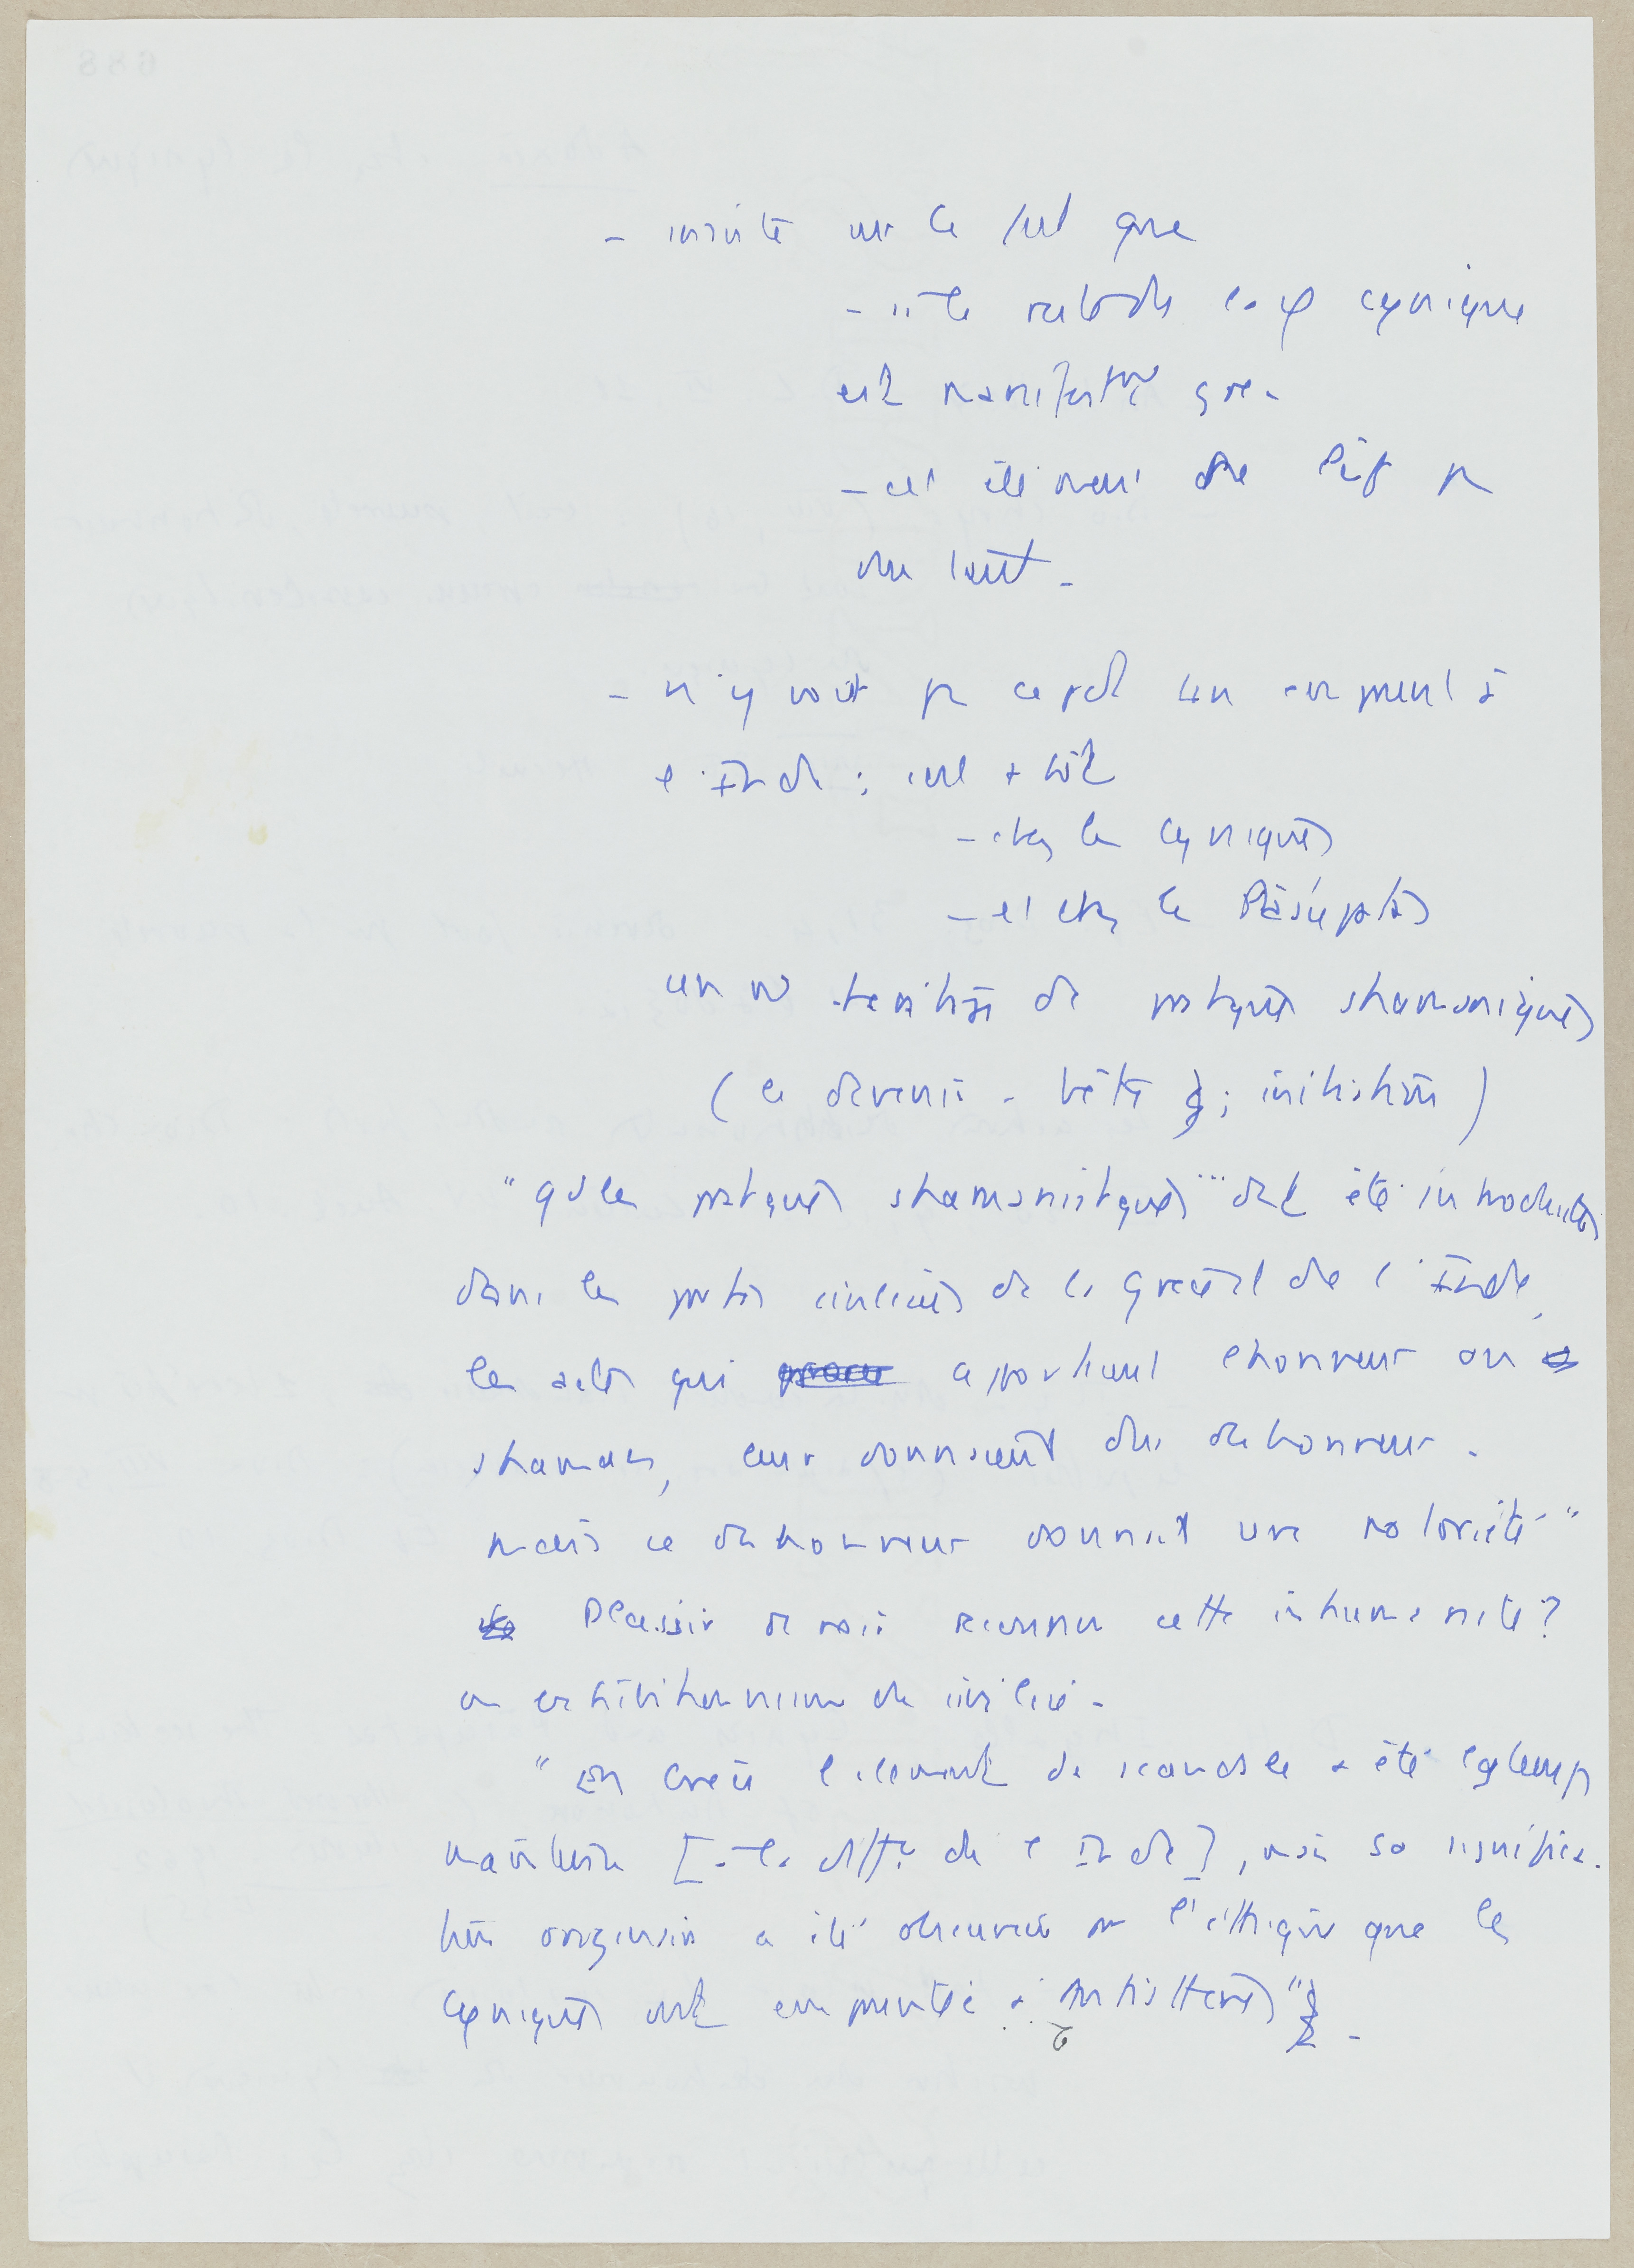 - insiste sur le fait que
- si le reste de la φ cynique
est manifestmt grec
- cet élément de l'est pas
du tout.
- n'y voit pas cepdt un emprunt à
l'Inde ; mais plutôt
- chez les cyniques
- et chez les Pāśupatas
un de pratiques shamaniques
(le devenir - bête ; initiation)
"Qd les pratiques shamanistiques ... ont été introduites
dans les parties civilisées de la Grèce et de l'Inde,
les actes qui apportaient l'honneur au
shaman, leur donnaient du deshonneur.
mais ce deshonneur donnait une notoriété"
Plaisir de voir reconnu cette inhumanité?
ou exhibitionnisme de civilisé.
"En Grèce l'élément de scandale a été longtemps
maintenu [à la diffce de l'Inde], mais sa significa-
tion originaire a été obscurcie par l'éthique que les
cyniques ont empruntée à Antisthènes".